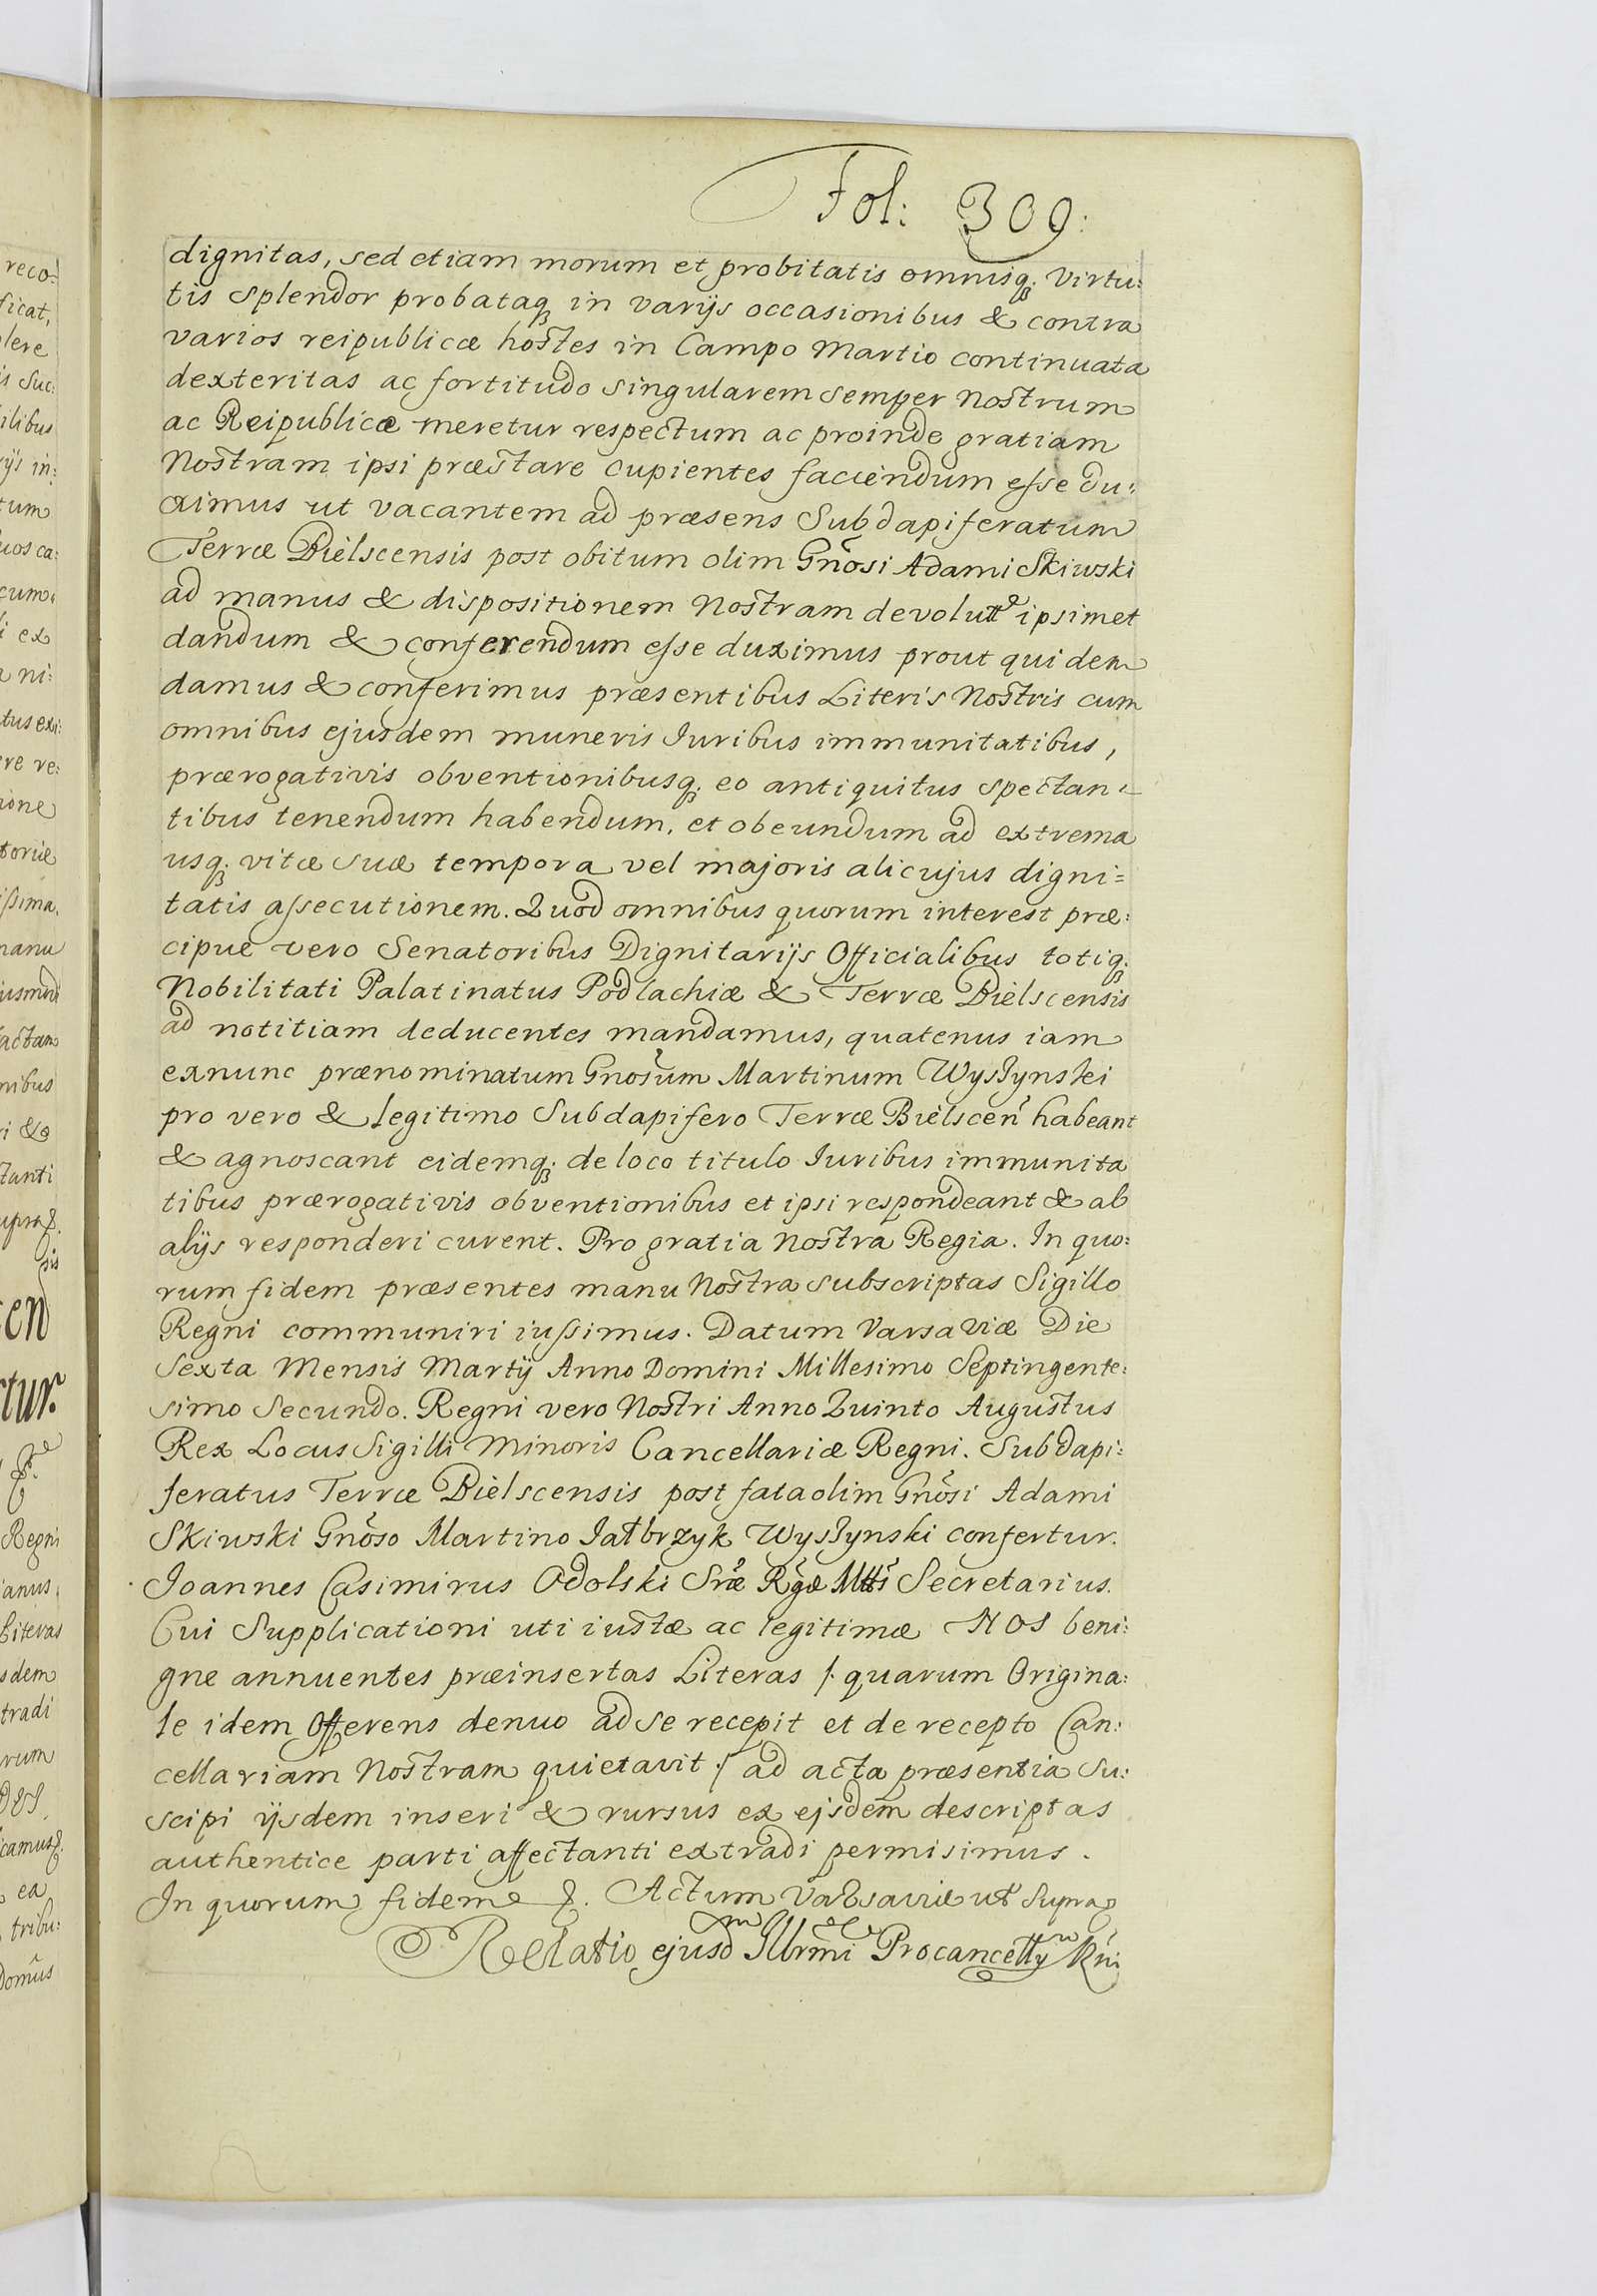 Fol: 309:
dignitas, sed etiam morum et probitatis omnisq; Virtu:
tis Splendor probataq; in varijs occasionibus & contra
varios reipublicæ hostes in Campo Martio continuata
dexteritas ac fortitudo singularem semper Nostrum
ac Reipublicæ meretur respectum ac proinde gratiam
Nostram ipsi præstare cupientes faciendum esse du:
ximus ut vacantem ad præsens Subdapiferatum
Terræ Bielscensis post obitum olim Gnosi Adami Skiwski
ad manus & dispositionem Nostram devolutt ipsimet
dandum & conferendum esse duximus prout quidem
damus & conferimus præsentibus Literis Nostris cum
omnibus ejusdem muneris Iuribus immunitatibus,
prærogativis obventionibusq; eo antiquitus spectan:
tibus tenendum habendum, et obeundum ad extrema
usq; vitæ suæ tempora vel majoris alicujus digni=
tatis assecutionem. Quod omnibus quorum interest præ:
cipue vero Senatoribus Dignitarijs Officialibus totiq;
Nobilitati Palatinatus Podlachiæ & Terræ Bielscensis
ad notitiam deducentes mandamus, quatenus iam
exnunc prænominatum Gnosum Martinum Wyszynski
pro vero & legitimo Subdapifero Terræ Bielscen habeant
& agnoscant eidemq; de loco titulo Iuribus immunita
tibus prærogativis obventionibus et ipsi respondeant & ab
alijs responderi curent. Pro gratia Nostra Regia. In quo:
rum fidem præsentes manu Nostra subscriptas Sigillo
Regni communiri iussimus. Datum Varsaviæ Die
Sexta Mensis Martij Anno Domini Millesimo Septingente:
simo Secundo. Regni vero Nostri Anno Quinto Augustus
Rex Locus Sigilli Minoris Cancellariæ Regni. Subdapi:
feratus Terræ Bielscensis post fata olim Gnosi Adami
Skiwski Gnoso Martino Jałbrzyk Wyszynski confertur.
Joannes Casimirus Odolski Sræ Rgæ Mttis Secretarius.
Cui Supplicationi uti iustæ ac legitimæ NOS beni:
gne annuentes præinsertas Literas /: quarum Origina:
le idem Offerens denuo ad se recepit et de recepto Can:
cellariam Nostram quietavit :/ ad acta præsentia Su:
scipi ijsdem inseri & rursus ex ejsdem descriptas
authentice parti affectanti extradi permisimus.
In quorum fidem &. Actum Varsaviæ ut Supra
Relatio ejusd Illrmi Procancellÿ Rni